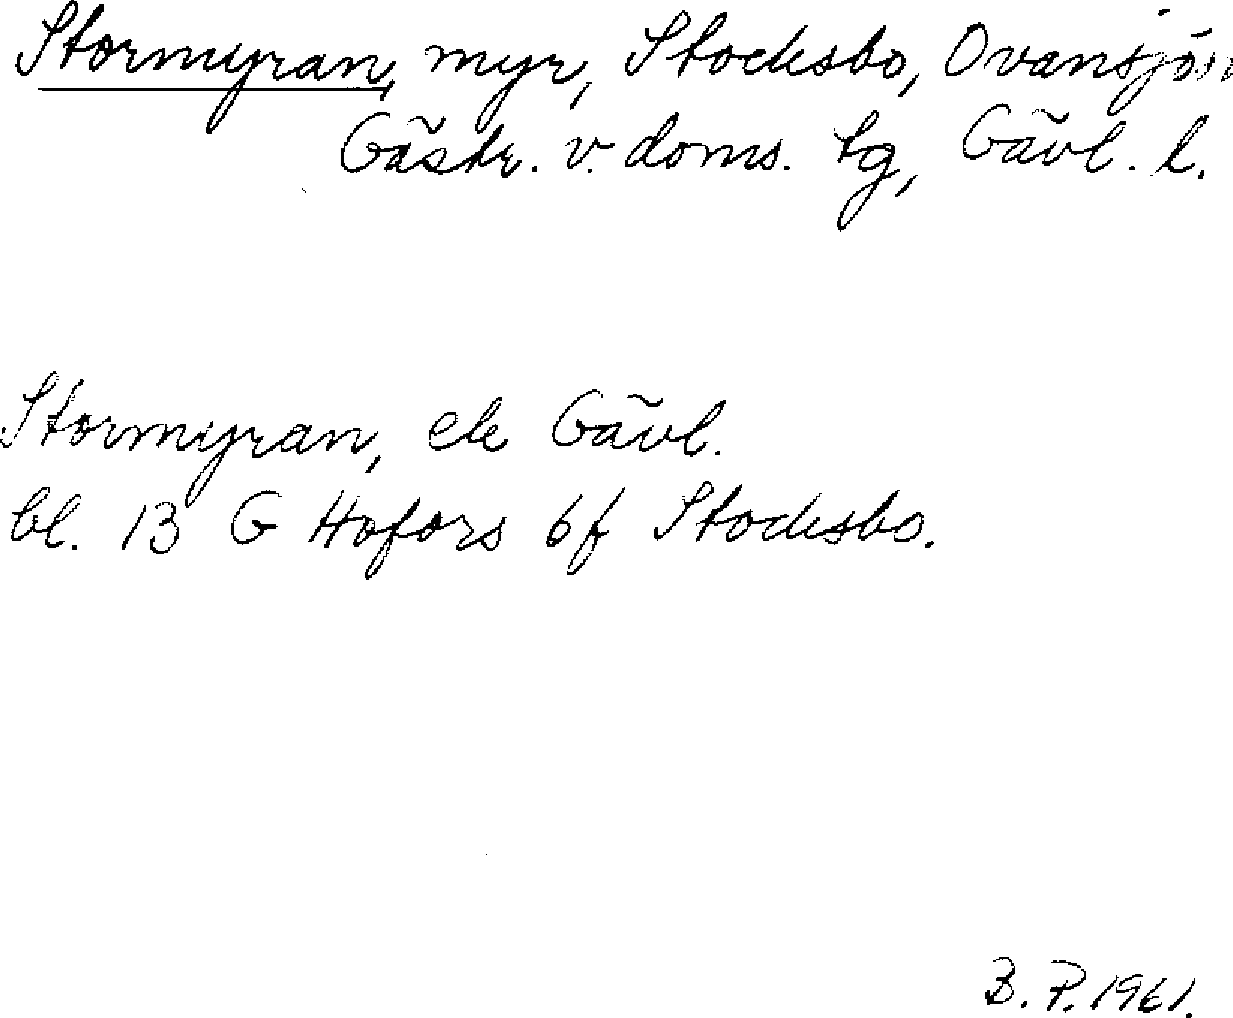 Stormyran, myr, Stocksbo, Ovansjö sn
Gästr. v. doms. tg, Gävl. l.
Stormyran, ek Gävl.
bl. 13 G Hofors 6f Stocksbo.
B. P. 1961.